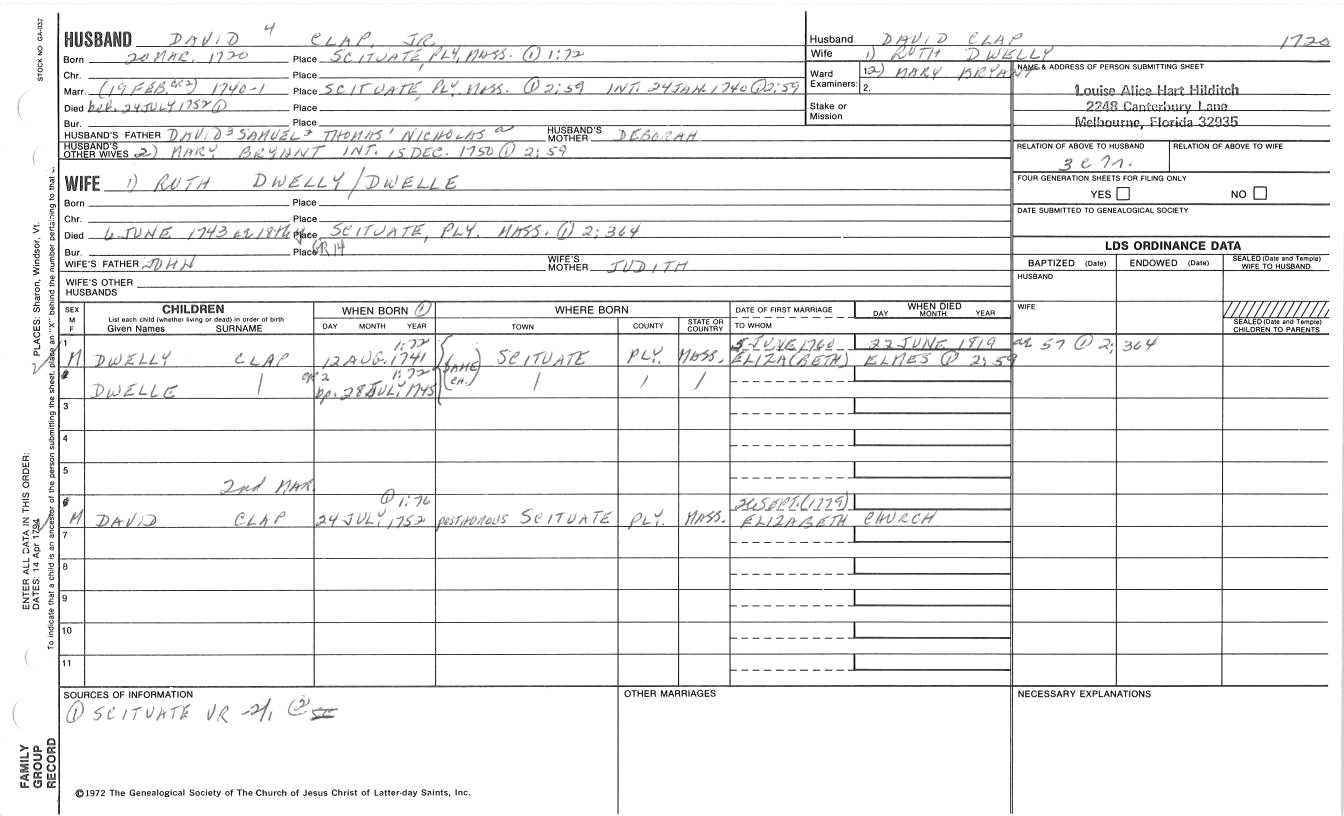 STOCK NO. GA-037
HUSBAND DAVID 4 CLAP, JR.
Born 20 MAR. 1720 Place SCITUATE, PLY, MASS. ① 1:72
Chr. Place
Marr. (19 FEB. OR 2) 1740-1 Place SCITUATE, PLY, MASS. ① 2:59 INT. 24 JAN. 1740 ① 2:59
Died bef. 24 JULY 1752 ① Place
Bur. Place
HUSBAND'S FATHER DAVID 3 SAMUEL THOMAS' NICHOLAS a HUSBAND'S MOTHER DEBORAH
HUSBAND'S OTHER WIVES 2) MARY BRYANT INT. 15 DEC. 1750 ① 2:59
WIFE 1) RUTH DWELLY/DWELLE
Born Place
Chr. Place
Died 6 JUNE 1743 Place SCITUATE, PLY. MASS. ① 2:364
Bur. Place GR 14
WIFE'S FATHER JOHN WIFE'S MOTHER JUDITH
WIFE'S OTHER HUSBANDS
Husband DAVID CLAP 1720
Wife 1) RUTH DWELLY
Ward Examiners: 1. 2) MARY BRYANT
2.
Stake or Mission
NAME & ADDRESS OF PERSON SUBMITTING SHEET
Louise Alice Hart Hilditch
2248 Canterbury Lane
Melbourne, Florida 32935
RELATION OF ABOVE TO HUSBAND RELATION OF ABOVE TO WIFE
3 c 7r.
FOUR GENERATION SHEETS FOR FILING ONLY
YES NO
DATE SUBMITTED TO GENEALOGICAL SOCIETY
LDS ORDINANCE DATA
BAPTIZED (Date) ENDOWED (Date) SEALED (Date and Temple) WIFE TO HUSBAND
HUSBAND
WIFE
SEALED (Date and Temple) CHILDREN TO PARENTS
SEX M F CHILDREN WHEN BORN ① WHERE BORN DATE OF FIRST MARRIAGE WHEN DIED
List each child (whether living or dead) in order of birth
Given Names SURNAME DAY MONTH YEAR TOWN COUNTY STATE OR COUNTRY TO WHOM DAY MONTH YEAR
1 1:72 5 JUNE 1760 22 JUNE 1819 57 ① 2:364
M DWELLY CLAP 12 AUG. 1741 (SAME SCITUATE PLY. MASS. ELIZA(BETH) ELMES ① 2:59
2 OR 2 1:72 CH.)
DWELLE bp. 28 JULY 1745
3
4
5
2nd MAR.
6 ① 1:76 26 SEPT. (1779)
M DAVID CLAP 24 JULY 1752 POSTHUMOUS SCITUATE PLY. MASS. ELIZABETH CHURCH
7
8
9
10
11
SOURCES OF INFORMATION
① SCITUATE VR -2/, ②
OTHER MARRIAGES
NECESSARY EXPLANATIONS
©1972 The Genealogical Society of The Church of Jesus Christ of Latter-day Saints, Inc.
FAMILY GROUP RECORD
ENTER ALL DATA IN THIS ORDER:
DATES: 14 Apr 1794 PLACES: Sharon, Windsor, Vt.
To indicate that a child is an ancestor of the person submitting the sheet, place an "X" behind the number pertaining to that